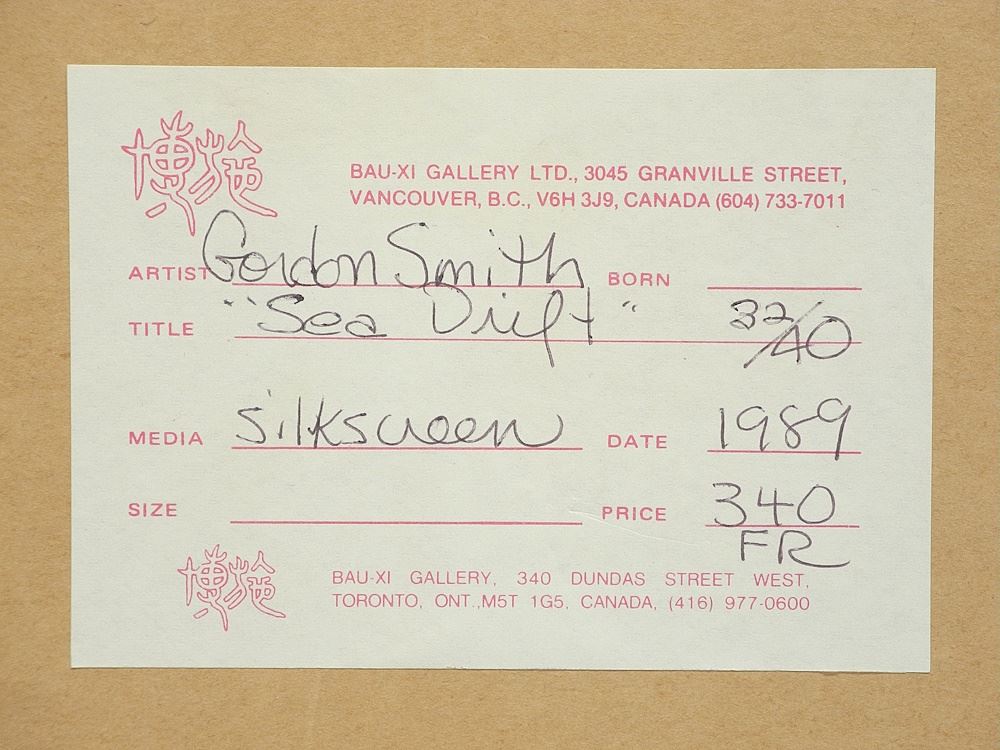 博施
BAU-XI GALLERY LTD., 3045 GRANVILLE STREET,
VANCOUVER, B.C., V6H 3J9, CANADA (604) 733-7011
ARTIST Gordon Smith BORN
TITLE "Sea Drift" 32/40
MEDIA silkscreen DATE 1989
SIZE PRICE 340
FR
博施
BAU-XI GALLERY, 340 DUNDAS STREET WEST,
TORONTO, ONT., M5T 1G5, CANADA, (416) 977-0600